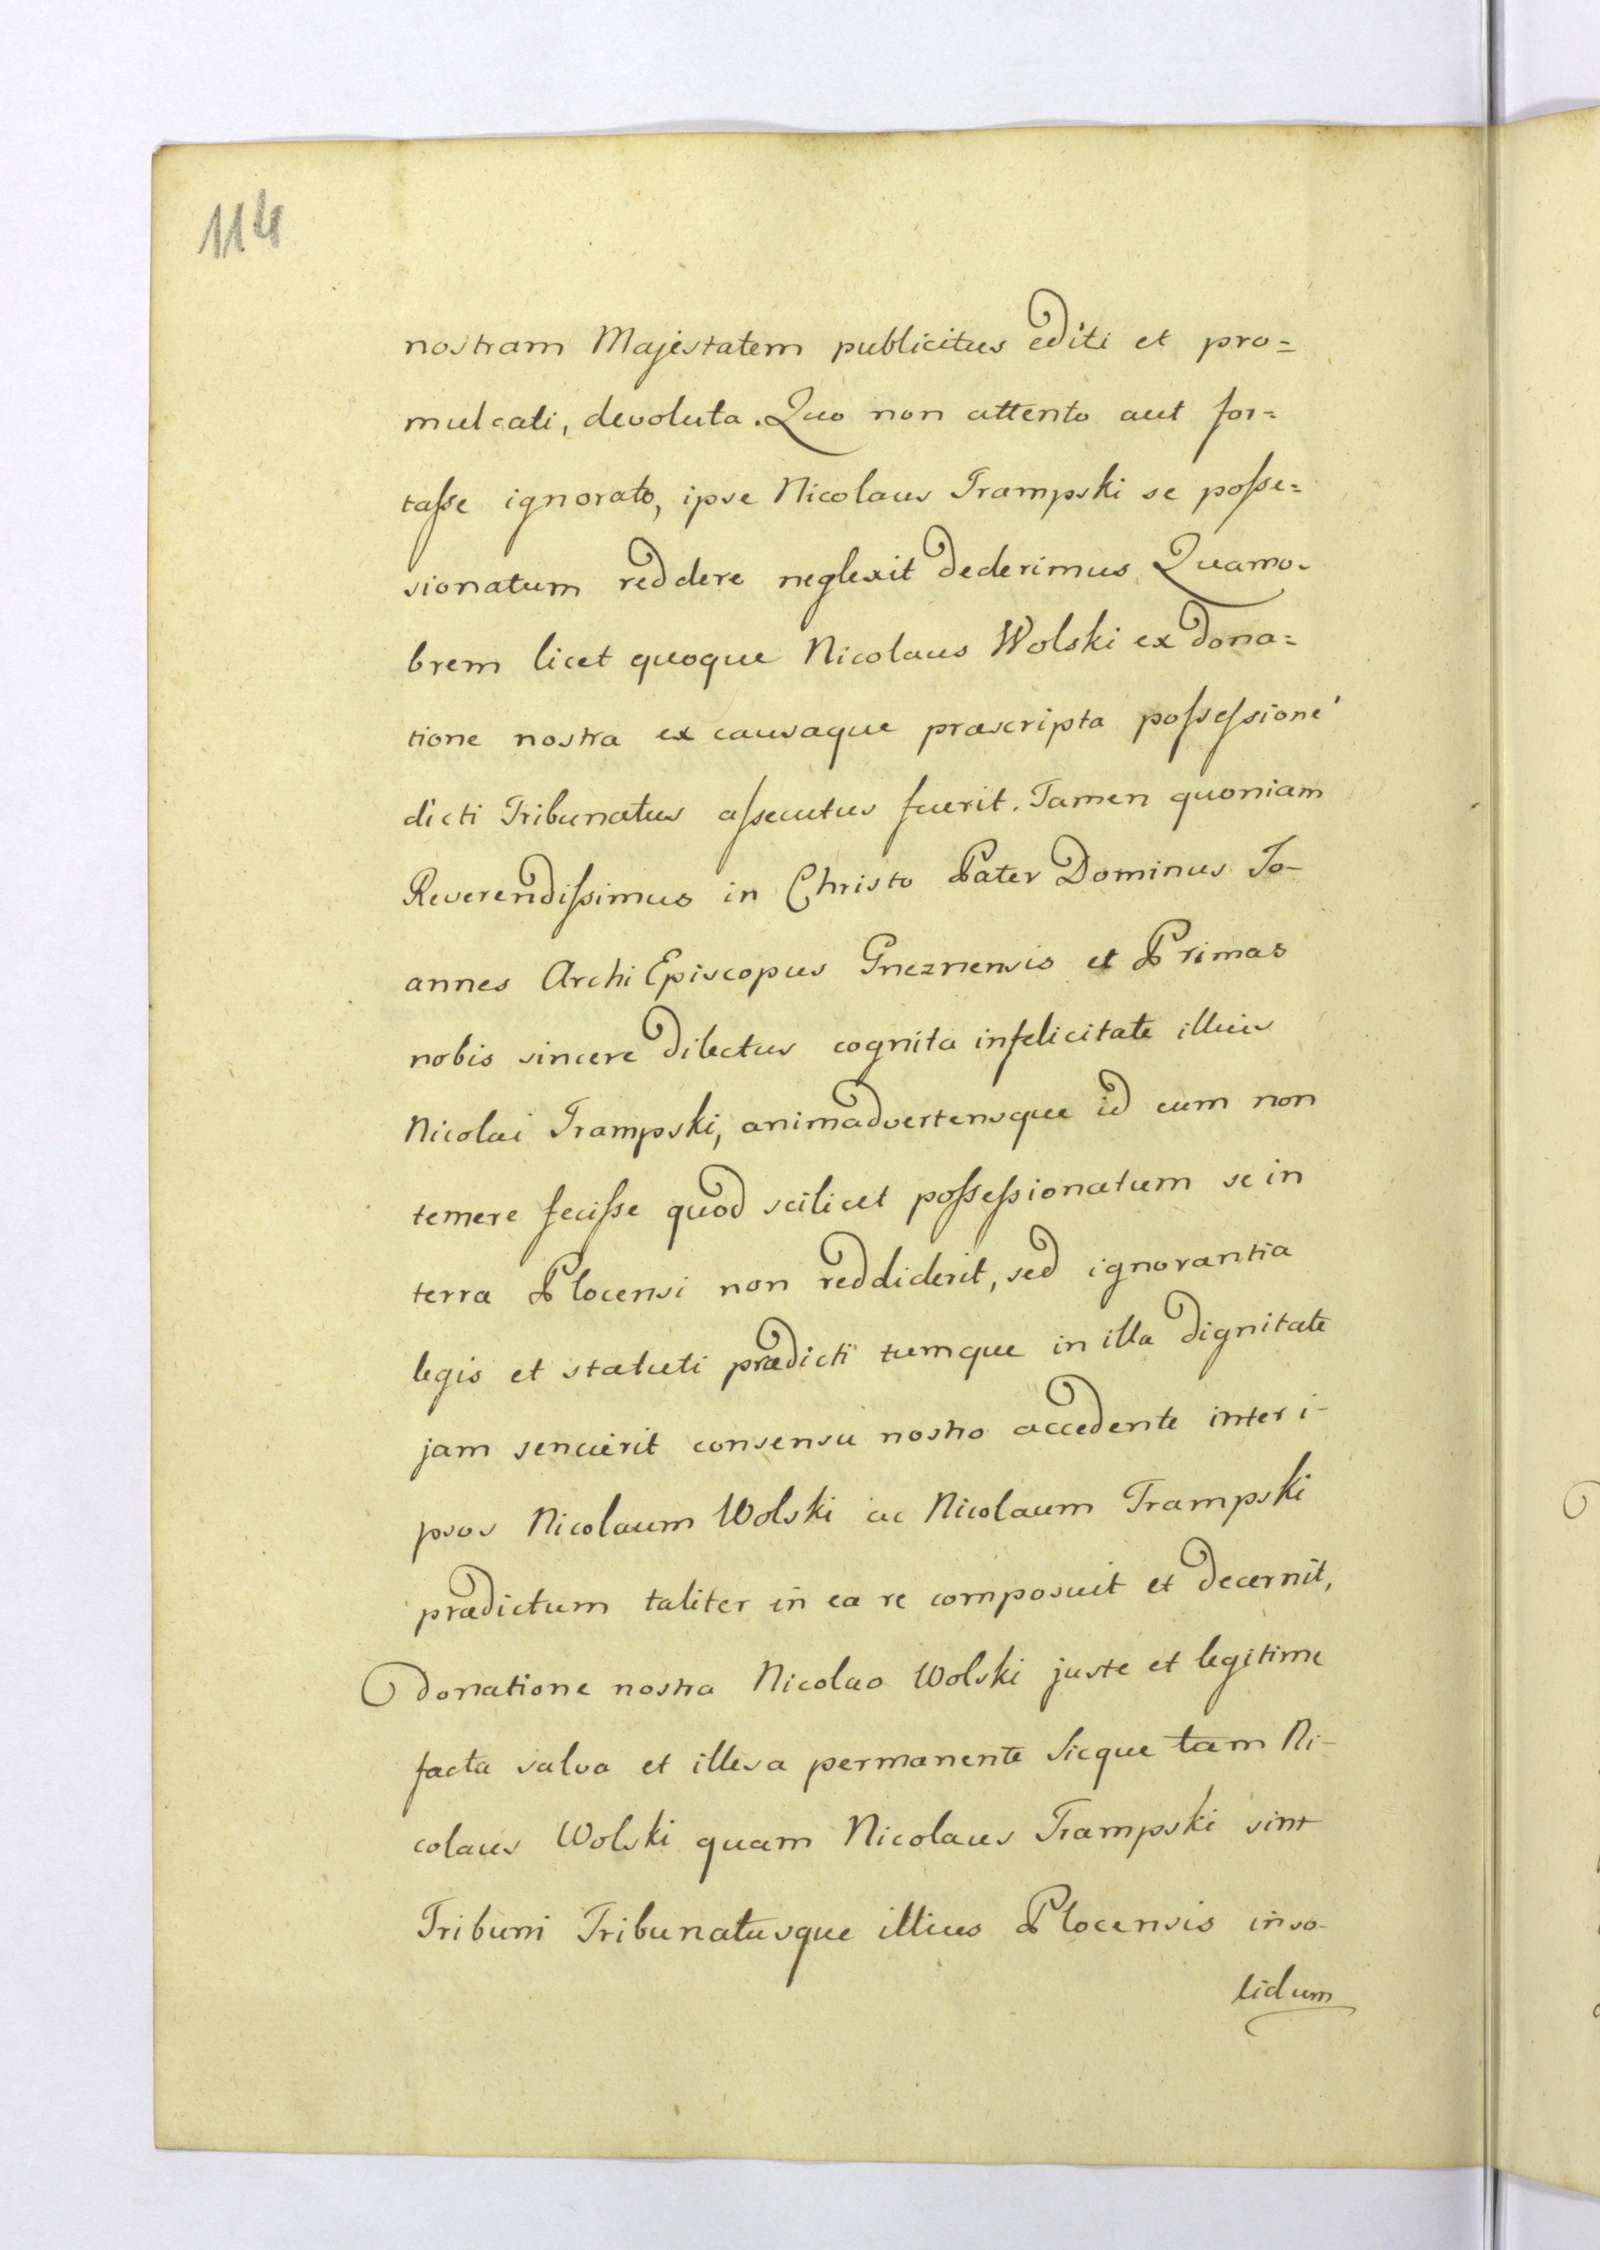 114
nostram Majestatem publicitus editi et pro=
mulcati, devoluta. Quo non attento aut for=
taſse ignorato, ipse Nicolaus Trampski se poſse=
sionatum reddere neglexit dederimus Quamo-
brem licet quoque Nicolaus Wolski ex dona=
tione nostra ex causaque præscripta poſseſsione'
dicti Tribunatus aſsecutus fuerit. Tamen quoniam
Reverendiſsimus in Christo Pater Dominus Jo-
annes Archi Episcopus Gneznensis et Primas
nobis sincere dilectus cognita infelicitate illius
Nicolai Trampski, animadvertensque id eum non
temere feciſse quod scilicet poſseſsionatum se in
terra Plocensi non reddiderit, sed ignorantia
legis et statuti prædicti tumque in illa dignitate
jam senuerit consensu nostro accedente inter i-
psos Nicolaum Wolski ac Nicolaum Trampski
prædictum taliter in ea re composuit et decernit,
donatione nostra Nicolao Wolski juste et legitime
facta salva et illesa permanente Sicque tam Ni-
colaus Wolski quam Nicolaus Trampski sint
Tribuni Tribunatusque illius Plocensis in so-
lidum